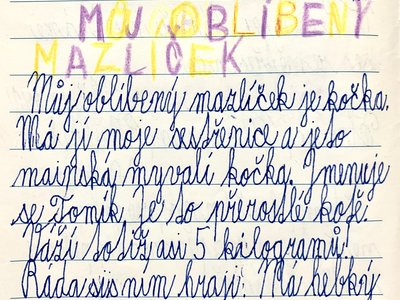 MŮJ OBLÍBENÝ
MAZLÍČEK
Můj oblíbený mazlíček je kočka.
Má jí moje sestřenice a je to
mainská mývalí kočka. Jmenuje
se Tomík. Je to přerostlé kotě.
Váží totiž asi 5 kilogramů!
Ráda si s ním hraji. Má hebký